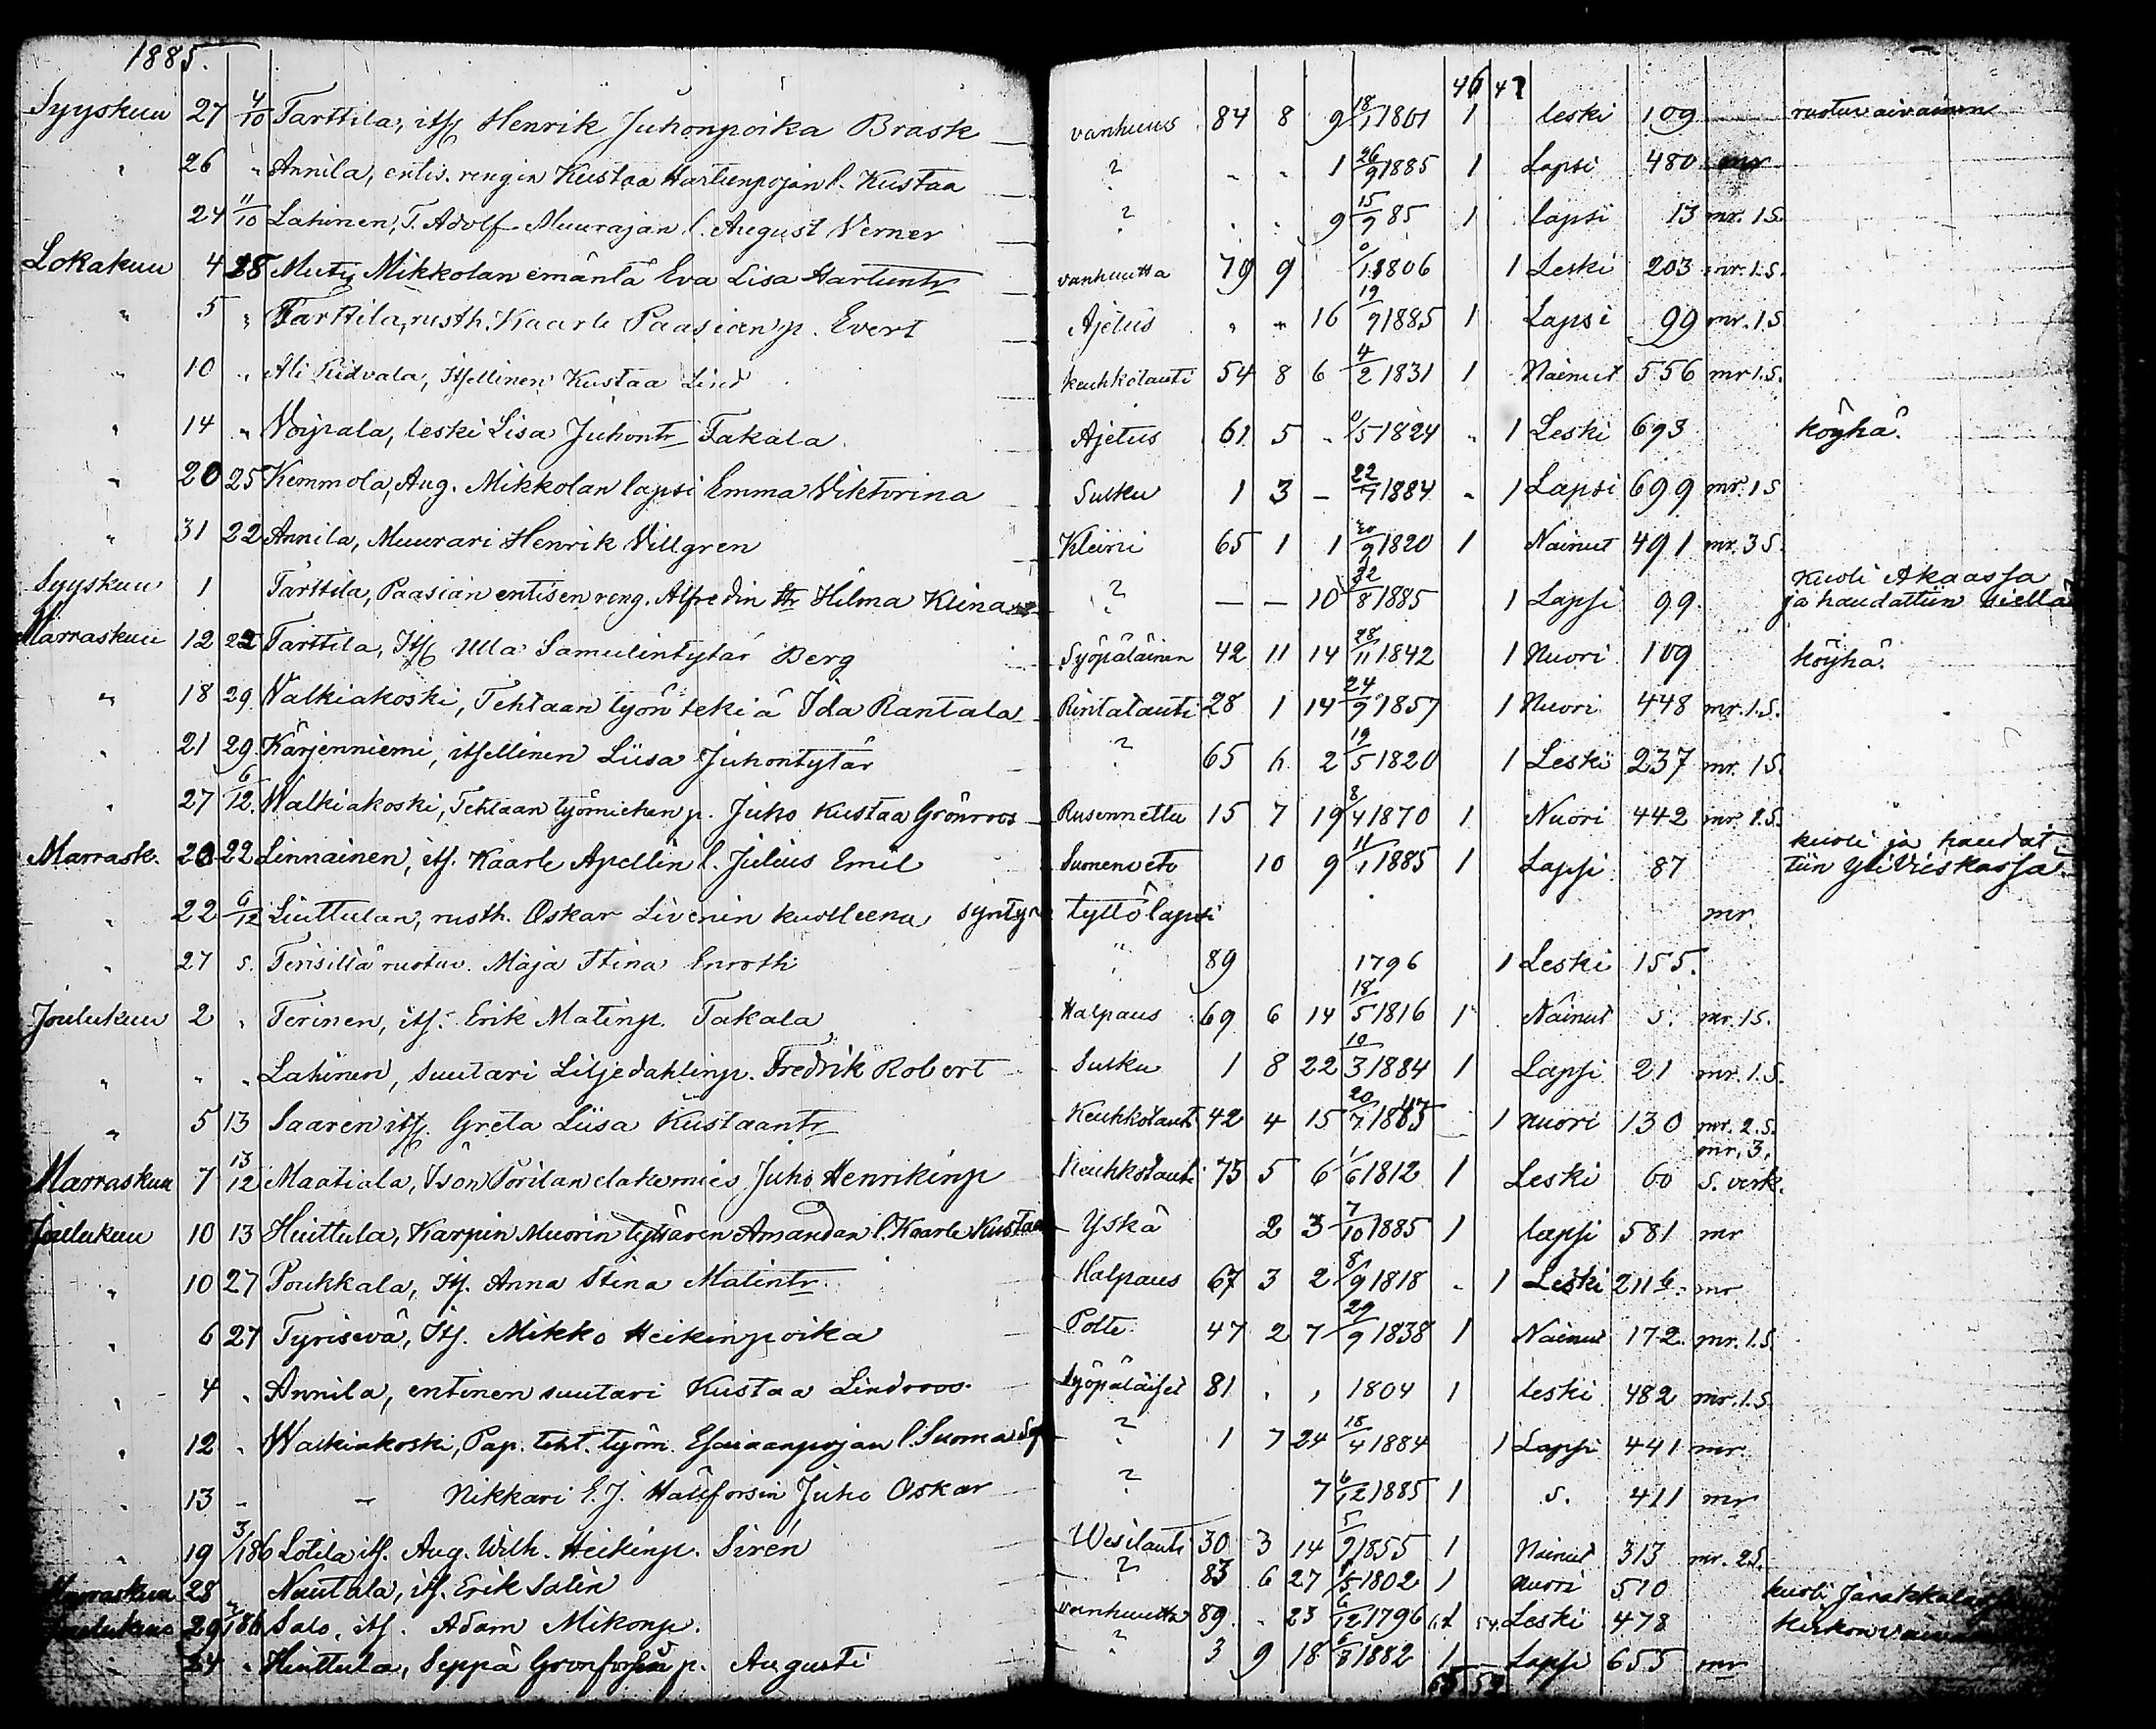 1885.
46 47
Syyskuu 27 4/10 Tarttila, itf. Henrik Juhonpoika Brask vanhuus 84 8 9 18/1 1801 1 leski 109 ruotuvaivainen
" 26 " Annila, entis. rengin Kustaa Hartunpojan l. Kustaa ? " " 1 26/9 1885 1 Lapsi 480 mr
24 11/10 Lahinen, T. Adolf Muurajan l. August Verner ? " " 9 15/9 85 1 lapsi 13 mr. 1 S.
Lokakuu 4 18 Mikkolan emäntä Eva Lisa vanhuutta 79 9 1806 1 Leski 203 mr. 1 S.
" 5 " Tarttila, rusth. Kaarle Paasian p. Evert Ajetus " " 16 19/9 1885 1 Lapsi 99 mr. 1 S
" 10 " Ali Ridvala, Itsellinen Kustaa Lind keuhkotauti 54 8 6 4/2 1831 1 Nainut 556 mr 1. S.
" 14 " Voipala, leski Lisa Juhontr Takala Ajetus 61 5 " 0/5 1824 " 1 Leski 693 köyhä.
" 20 25 Kemmola, Aug. Mikkolan lapsi Emma Viktorina Susku 1 3 – 22/7 1884 " 1 Lapsi 699 mr. 1 S
" 31 22 Annila, Muurari Henrik Villgren Kleini 65 1 1 30/9 1820 1 Nainut 491 mr. 3 S.
Syyskuu 1 Tarttila, Paasian entisen reng. Alfredin tr Hilma Klina ? — — 10 22/8 1885 1 Lapsi 99. kuoli Akaassa
ja haudattiin siellä
Marraskuu 12 22 Tarttila, Itf. Ulla Samulintytär Berg Syöpäläinen 42 11 14 28/11 1842 1 Nuori 109 köyhä.
" 18 29 Walkiakoski, Tehtaan työn tekiä Ida Rantala Rintatauti 28 1 14 24/9 1857 1 Nuori 448 mr. 1. S.
" 21 29 Kärjenniemi, itsellinen Liisa Juhontytär ? 65 6 2 19/5 1820 1 Leski 237 mr. 1 S.
" 27 6/12. Walkiakoski, Tehtaan työmiehen p. Juho Kustaa Grönroos Rusennettu 15 7 19 8/4 1870 1 Nuori 442 mr. 1. S.
Marrask. 20 22 Linnainen, itf. Kaarle Apellin l. Julius Emil Suonenveto 10 9 11/1 1885 1 Lapsi 87 kuoli ja haudat-
tiin Ylivieskassa.
" 22 6/12 Liuttulan, rusth. Oskar Livenin kuolleena synty tyttölapsi mr
" 27 s. Terisillä ruotuv. Maja Stina Enroth " 89 1796 1 Leski 155.
Joulukuu 2 " Terinen, itf. Erik Matinp. Takala Halpaus 69 6 14 18/5 1816 1 Nainut 5. mr. 1 S.
" " " Lahinen, Suutari Liljedahlinp. Fredrik Robert Susku 1 8 22 10/3 1884 1 Lapsi 21 mr. 1. S.
" 5 13 Saaren itf. Greta Liisa Kustaantr Keuhkotauti 42 4 15 20/7 1843 1 nuori 130 mr. 2. S.
Marraskuu 7 13/12 Maatiala, Ison Pörilan elakemies Juho Henrikinp Keuhkotauti 75 5 6 1/6 1812 1 Leski 60 mr. 3.
S. verk.
Joulukuu 10 13 Huittula, Karpin Muorin tyttären Amandan l. Kaarle Kustaa Yskä 2 3 7/10 1885 1 lapsi 581 mr
" 10 27 Poukkala, Itf. Anna Stina Matintr Halpaus 67 3 2 8/9 1818 " 1 Leski 211 b. mr
" 6 27 Tyrisevä, Itf. Mikko Heikinpoika Polte 47 2 7 29/9 1838 1 Nainut 172 mr. 1. S.
" 4 " Annila, entinen suutari Kustaa Lindroos Syöpäläiset 81 " " 1804 1 leski 482 mr. 1. S.
" 12 " Walkiakoski, Pap. teht. työm. Esaiaanpojan l. Suoma ? 1 7 24 18/4 1884 1 Lapsi 441 mr
" 13 " " Nikkari E. J. Hällforsin Juho Oskar ? 7 6/12 1885 1 s. 411 mr
" 19 3/1 86 Lotila itf. Aug. Wilh. Heikinp. Sirén Wesitauti 30 3 14 5/9 1855 1 Nainut 313 mr. 2 S.
Marraskuu 28 Nuutala, itf. Erik Salin ? 83 6 27 1/5 1802 1 nuori 510 kuoli
Joulukuu 29 1 86 Salo, itf. Adam Mikonp. vanhuutta 89 " 23 6/12 1796 1 Leski 478
24 " Huittula, Seppä Grönforsin p. Augusti ? 3 9 18 6/3 1882 1 Lapsi 655 mr